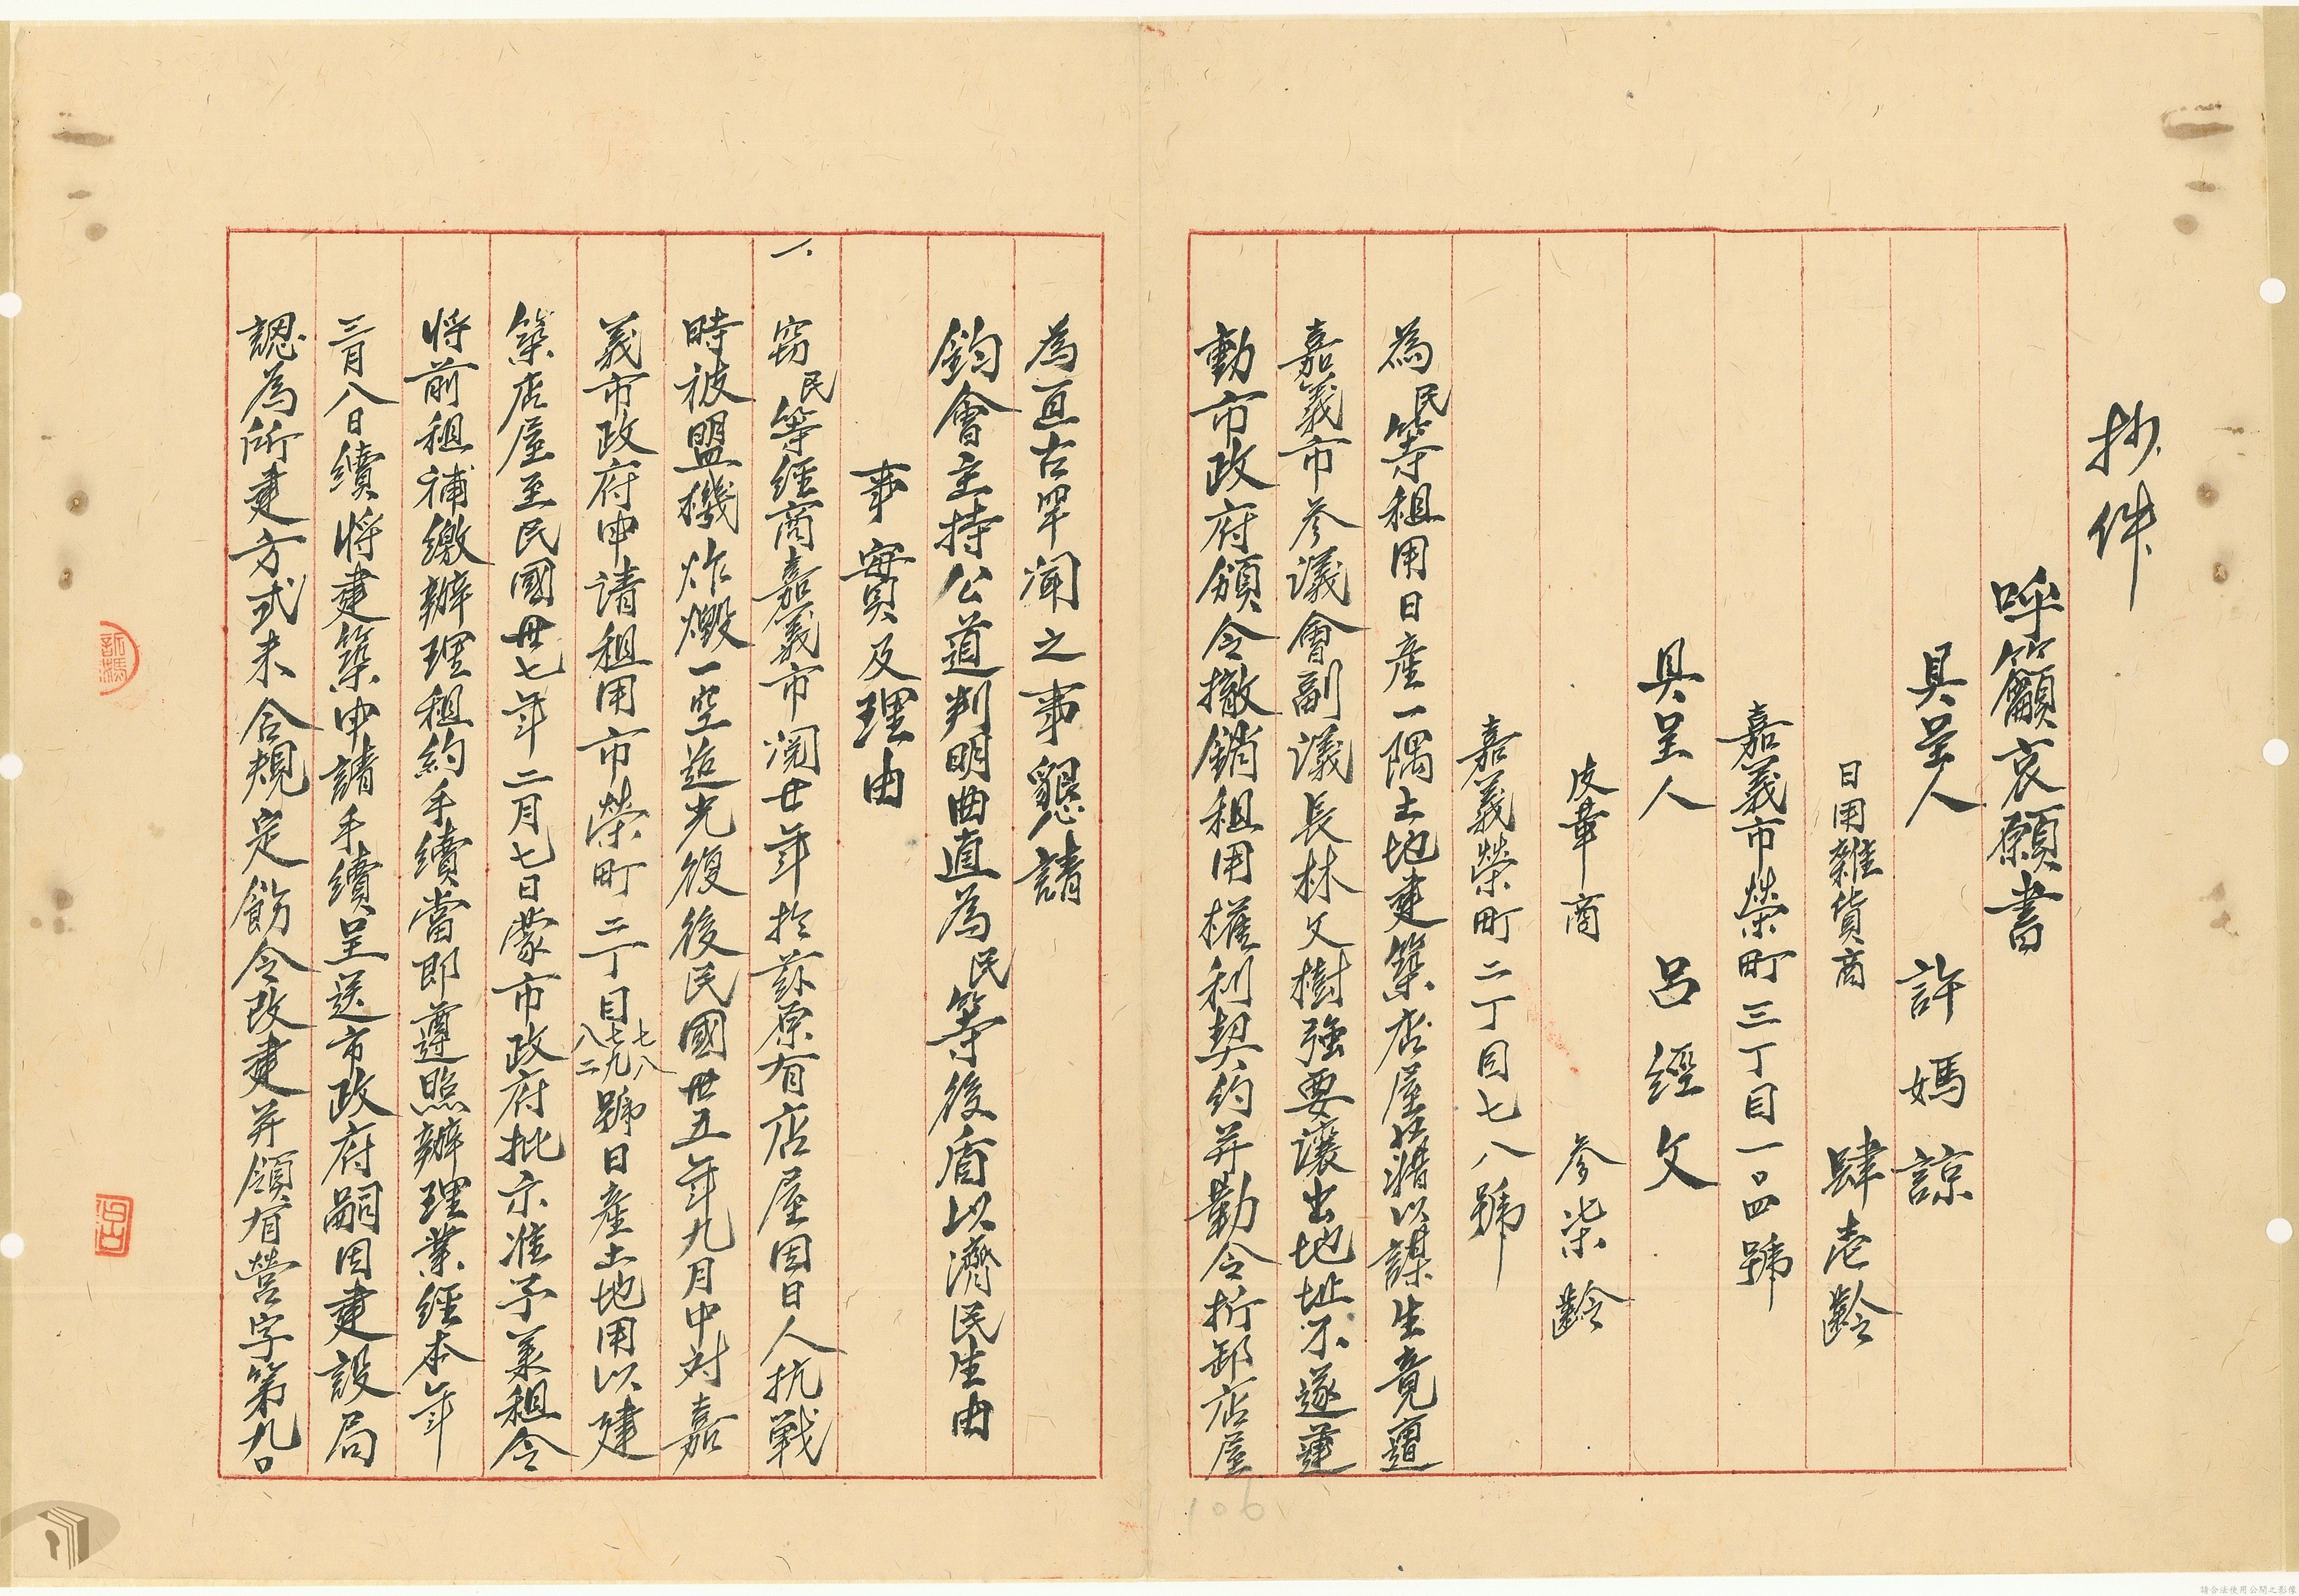 抄件
呼籲哀願書
具呈人　許媽諒
日用雜貨商　肆壱齡
嘉義市榮町三丁目一〇四號
具呈人　呂經文
皮革商　参柒齡
嘉義榮町二丁目七八號
為民等租用日產一隅土地建築店屋莊藉以謀生竟遭
嘉義市参議會副議長林文樹強要讓出地址不遂運
動市政府頒令撤銷租用權利契約并勒令折卸店屋
為亘古罕闻之事懇請
鈞會主持公道判明曲直為民等後盾以濟民生由
事實及理由
一、窃民等経商嘉義市闵廿年扵茲原有店屋因日人抗戦
時被盟機炸燬一空迨光復後民國卅五年九月中对嘉
義市政府申请租用市榮町二丁目七八七九八二號日產土地用以建
築店屋至民國卅七年二月七日蒙市政府批示准予承租令
将前租補繳辦理租約手續當即遵照辦理業経本年
三月八日續将建築申請手續呈送市政府嗣因建設局
認為所建方式未合規定飭令改建并領有營字第九〇
106
請合法使用公開之影像